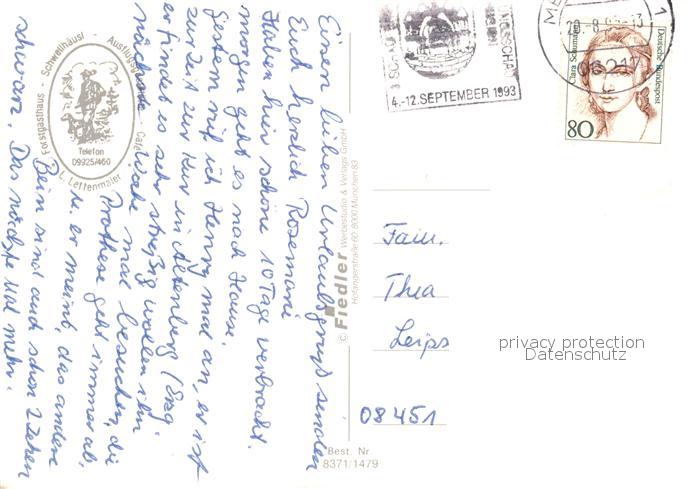 Einen lieben Urlaubsgruß senden
Euch herzlich Rosemarie
Haben hier schöne 10 Tage verbracht.
morgen geht es nach Hause.
Gestern rief ich Henry mal an, er ist
zur Zeit zur Kur in Altenberg (Erzg.
er findet es sehr streßig wollen ihn
nächste Woche mal besuchen, die
Prothese geht immer ab,
u. er meint, das andere
Bein sind auch schon 2 Zehen
schwarz. Das nächste Mal mehr.
Forstgasthaus - Schwellhäusl - Ausflugsg
Café
Telefon
09925/460
L. Lettenmaier
© Fiedler Werbestudio & Verlags GmbH
Hofangerstraße 60 8000 München 83
Best. Nr
8371/1479
4.-12. SEPTEMBER 1993
Clara Schumann
Deutsche Bundespost
80
Fam.
Thea
Leips
08451
privacy protection
Datenschutz